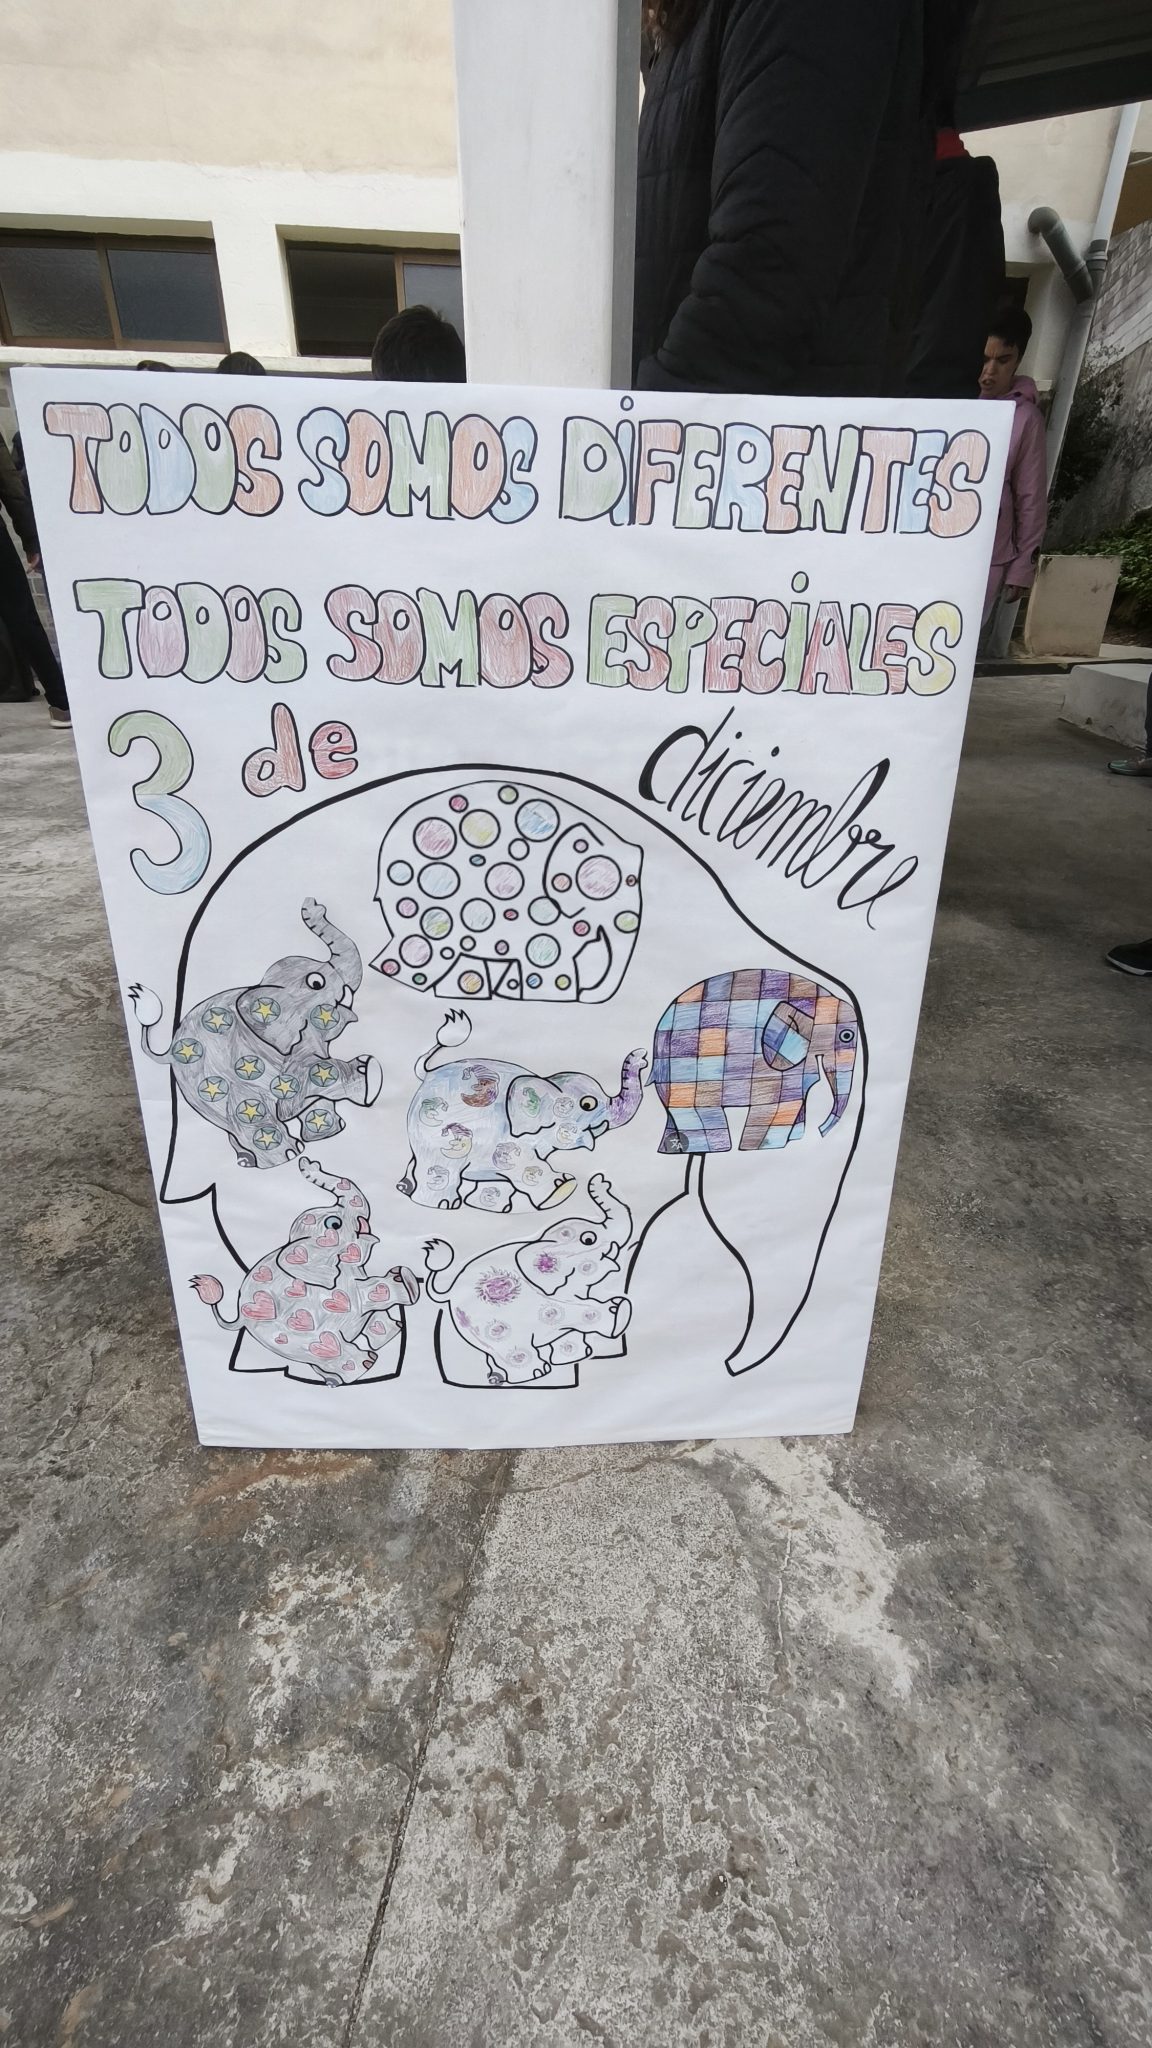 TODOS SOMOS DiFERENTES
TODOS SOMOS ESPECiALES
3 de diciembre